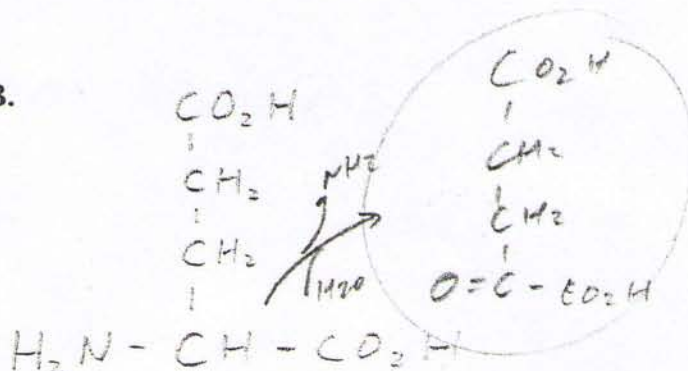 3.
CO₂H
CH₂
CH₂
H₂N - CH - CO₂H
NH₂
H₂O
CO₂H
CH₂
CH₂
O=C - CO₂H